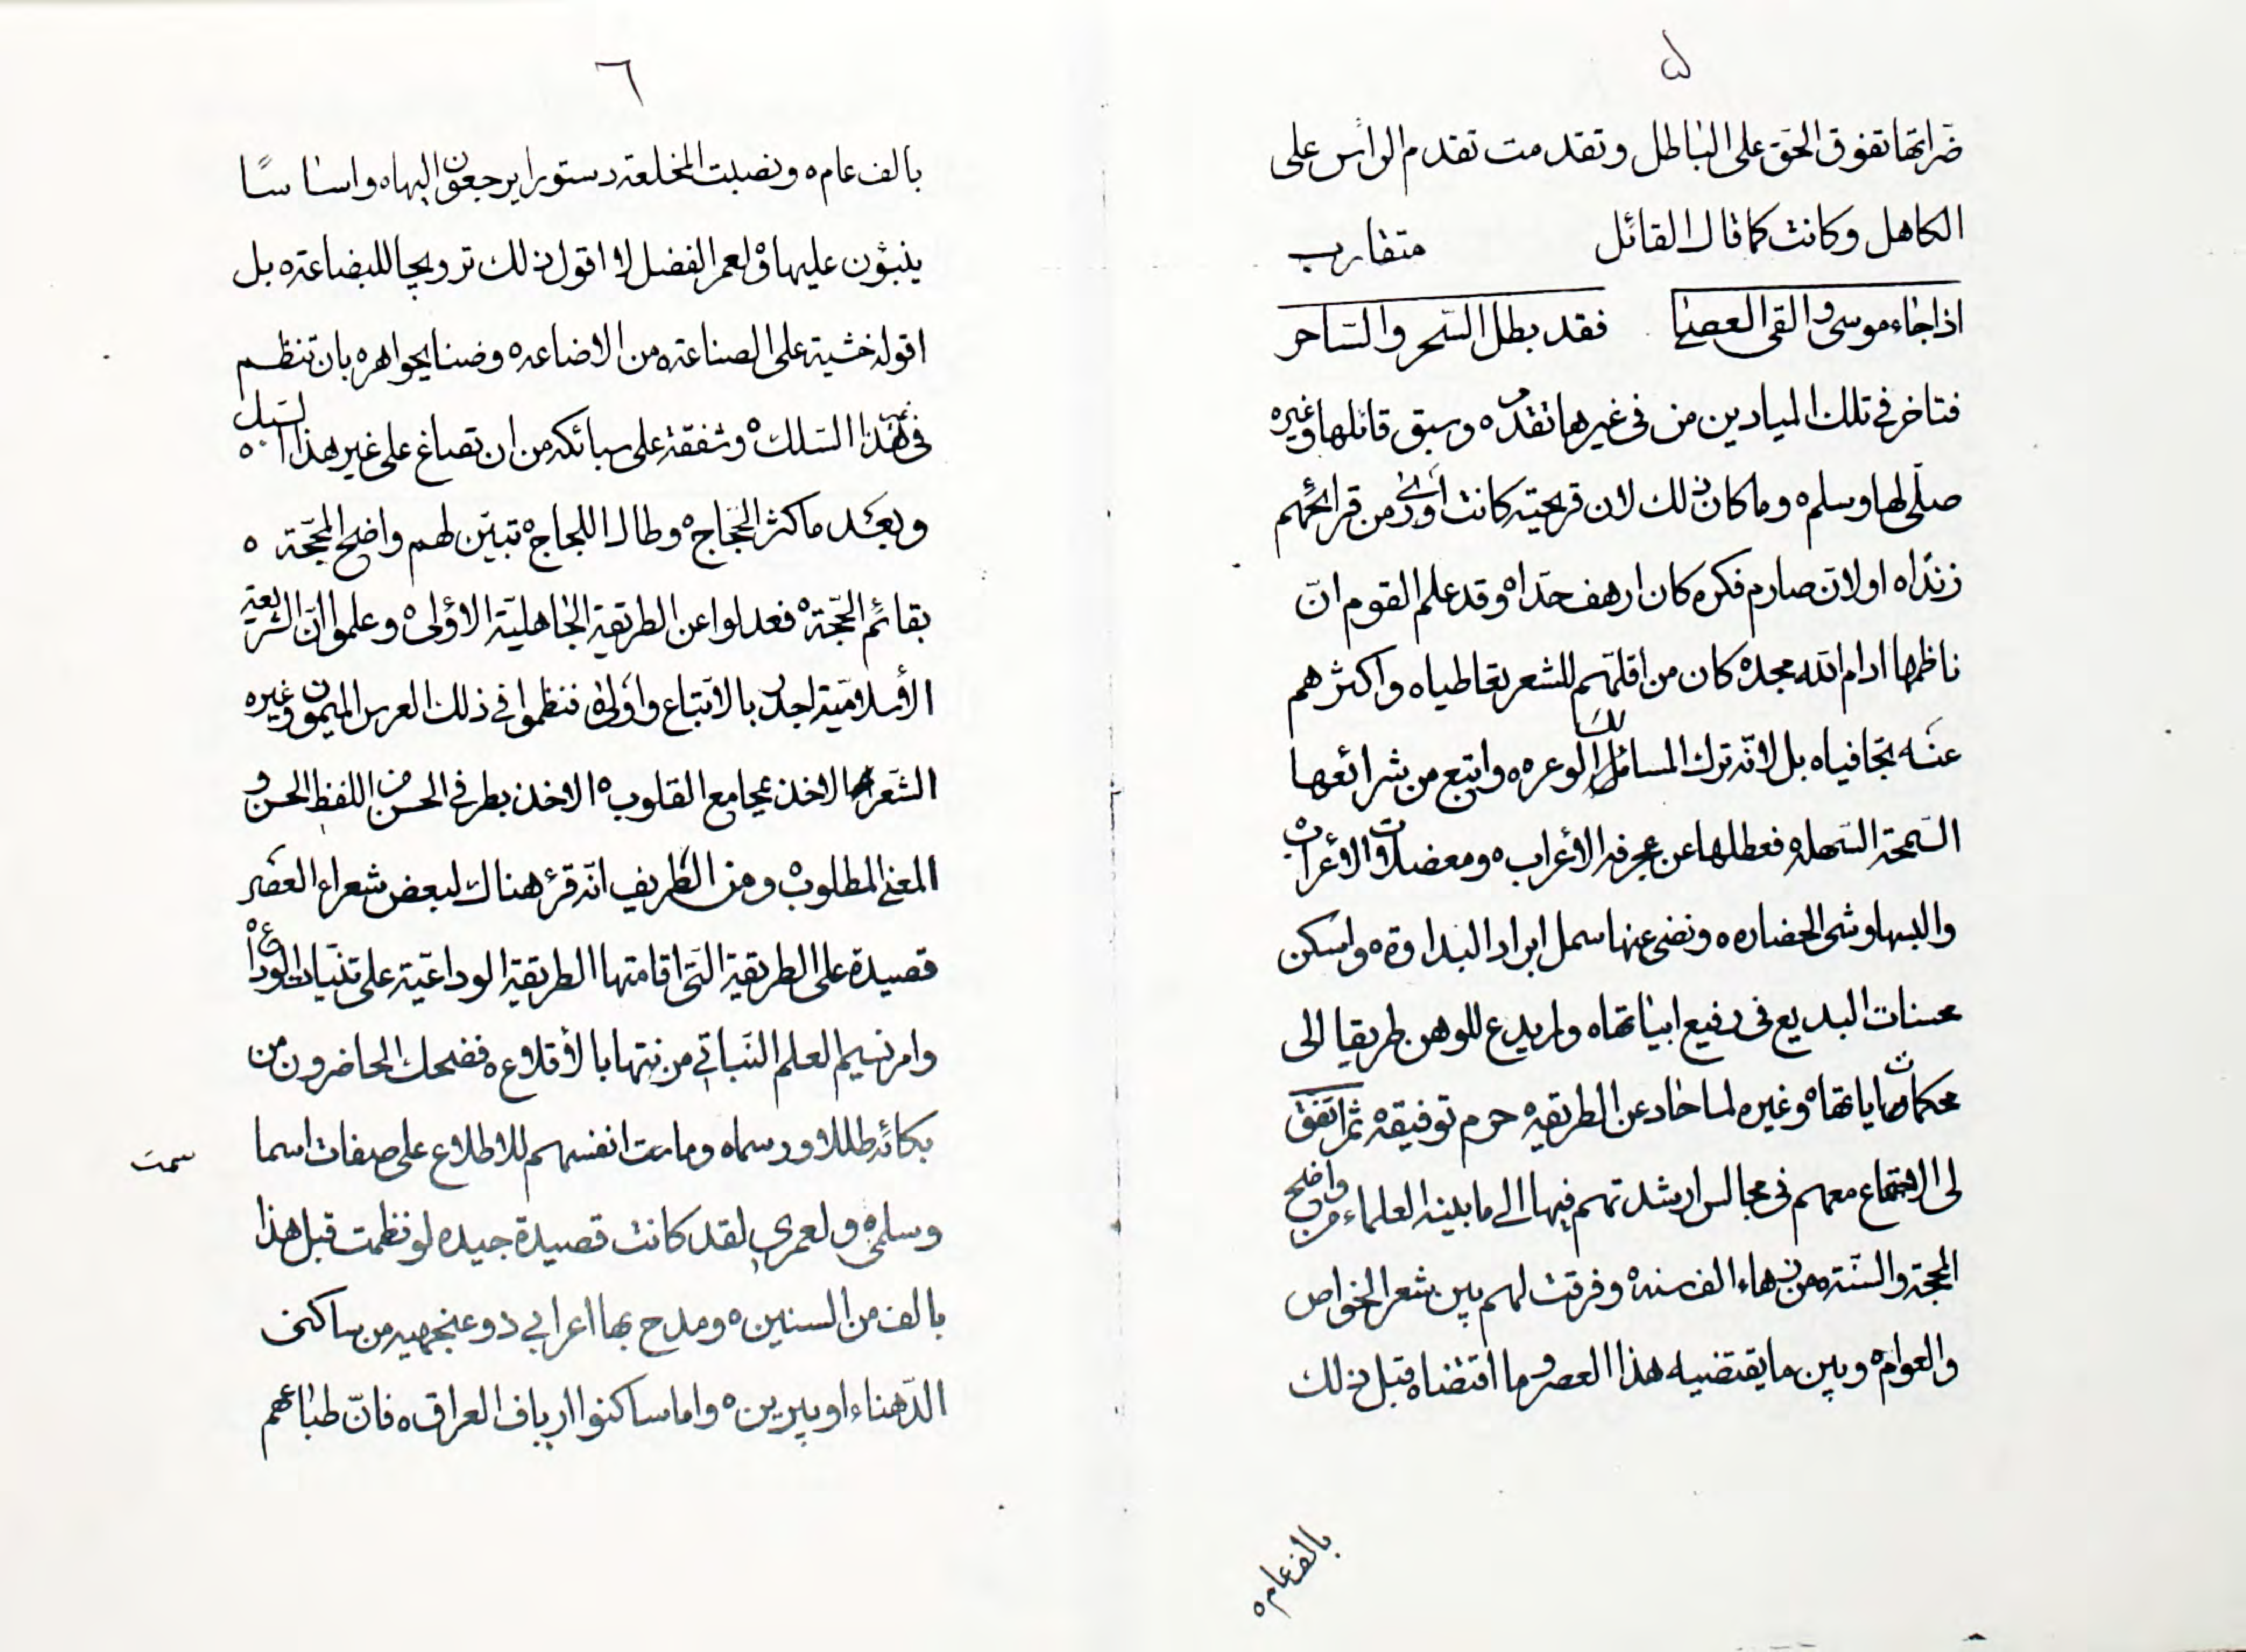 ٥
ضراتها تفوق الحق على الباطل وتقدمت تقدم الراس على
الكاهل وكانت كما قال القائل متقارب
اذا جاء موسى والقى العصا فقد بطل السحر والساحر
فتاخر في تلك الميادين من في غيرها تقدم ه وسبق قائلها وغيره
صلّى لها وسلم ه وما كان ذلك لان قريحته كانت أورى من قرائحهم
زنداه او لان صارم فكره كان ارهف حداه وقد علم القوم انّ
ناظمها ادام الله مجده كان من اقلّهم للشعر تعاطيا ه واكثرهم
عنه تجافيا ه بل لانّه ترك المسالك الوعره ه واتبع من شرائعها
السّمحة السّهله فعطلها عن عجرفة الأعراب ه ومعضلات الأعراب ه
والبسها وشى الحضاره ه ونضى عنها سمل ابراد البداوة ه واسكن
محسنات البديع في رفيع ابياتها ه ولم يدع للوهن طريقا الى
محكمات اياتها ه وغيره لما حاد عن الطريقه حرم توفيقه ثم اتّفق
لى الاجتماع معهم في مجالس ارشدتهم فيها الى ما بينه العلماء من واضح
المحجة والسّنة من زهاء الف سنه ه وفرقت لهم بين شعر الخواص
والعوام ه وبين ما يقتضيه هذا العصر وما اقتضاه قبل ذلك
بالف عام ه
٦
بالف عام ه ونصبت لمخلعة دستورا يرجعون اليها ه واساسًا
ينبؤن عليها ه ولعمر الفضل لا اقول ذلك ترويجا للبضاعة ه بل
اقوله خشية على الصناعة ه من الاضاعه ه وضنا بجواهره بان تنظم
في غير هذا السلك ه وشفقة على سبائكه من ان تصاغ على غير هذا السّبك ه
وبعد ما كثر الحجاج ه وطال اللجاج ه تبيّن لهم واضح المحجّة ه
بقائم الحجّة ه فعدلوا عن الطريقة الجاهليّة الأولى ه وعلموا انّ الشريعة
الأسلاميّة اجدر بالاتّباع واولى ه فنظموا في ذلك العرس الميمون وغيره
الشّعر الاخذ بمجامع القلوب ه الاخذ بطرفي الحسن من اللفظ الحسن و
المعنى المطلوب ه ومن الظريف انّه قرئ هناك لبعض شعراء العصر
قصيدة على الطريقة التى اقامتها الطريقة الوداعيّة على ثنيات الوداع ه
وامر نسيم العلم النّباتي من نبتها بالأقلاع ه فضحك الحاضرون من
بكائه طللا ورسما ه وماءت انفسهم للاطلاع على صفات اسما
وسلمى ه ولعمري لقد كانت قصيدة جيده لو نظمت قبل هذا
بالف من السنين ه ومدح بها اعرابي ذو عنجهيه من ساكنى
الدّهناء او يبرين ه واما ساكنوا ارياف العراق ه فانّ طباعهم
سمت